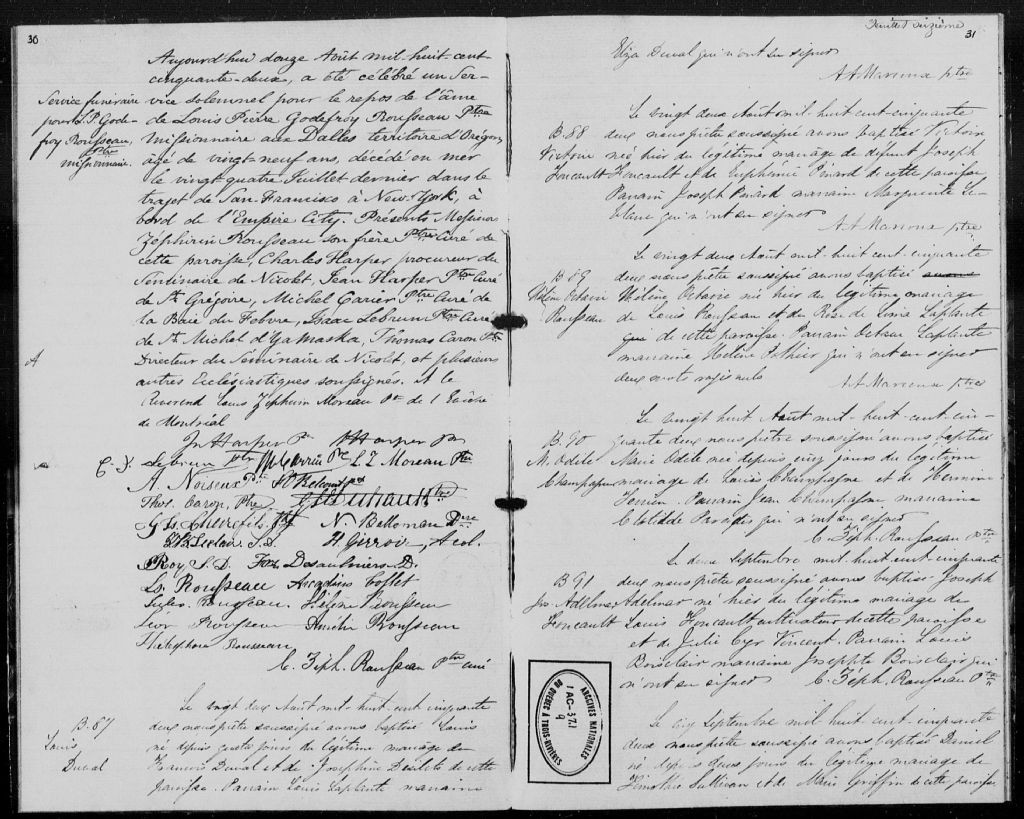 30
Aujourd'hui douze Août mil-huit-cent-
cinquante-deux, a été célébré un Ser-
Service funéraire
pour L. P. Gode-
froy Rousseau,
Ptre
missionnaire.
vice solemnel pour le repos de l'âme
de Louis Pierre Godefroy Rousseau Ptre
Missionnaire aux Dalles territoire d'Orégon,
âgé de vingt-neuf ans, décédé en mer
le vingt-quatre Juillet dernier dans le
trajet de San-Francisco à New-York, à
bord de l'Empire City. Présents Messieurs
Zéphirin Rousseau son frère Ptre Curé de
cette paroisse, Charles Harper procureur du
Séminaire de Nicolet, Jean Harper Ptre Curé
de St. Grégoire, Michel Carier Ptre Curé de
la Baie du Febvre, Isaac Lebrun Ptre Curé
de St. Michel d'Yamaska, Thomas Caron Ptre
A
Directeur du Séminaire de Nicolet, et plusieurs
autres Ecclésiastiques soussignés. et le
Reverend Louis Zéphirin Moreau Ptre de l'Evêché
de Montréal
Harper Ptre Harper Ptre
Lebrun Ptre M. Carrier Ptre L. Z. Moreau Ptre
A. Noiseux
Thos. Caron, Ptre
N. Bellemare
Leclair, S.D.
H. Girroir, Acol.
P Roy S. D. Desaulniers D.
Ls. Rousseau Arcadius
Jules Rousseau. Hélène Rousseau
Léon Rousseau Amélie Rousseau
Théléphore Rousseau
C. Zéph. Rousseau Ptre curé
B. 87
Louis
Duval
Le vingt deux Août mil-huit-cent cinquante
deux nous prêtre soussigné avons baptisé Louis
né depuis quatre jours du légitime mariage de
François Duval et de Joséphine Desilets de cette
paroisse. Parrain Louis Laplante marraine
Feuillet seizième
31
Eliza Duval qui n'ont su signer
ptre
B. 88
Victoire
Foucault
Le vingt deux Août mil huit-cent-cinquante
deux nous prêtre soussigné avons baptisé Victoire
né hier du légitime mariage de défunt Joseph
Foucault et de Euphémie Pénard de cette paroisse
Parrain Joseph Pénard marraine Marguerite Le-
blanc qui n'ont su signer
ptre
B. 89
Hélène Octavie
Rousseau
Le vingt deux Août mil huit cent cinquante
deux nous prêtre soussigné avons baptisé
Hélène Octavie née hier du légitime mariage
de Louis Rousseau et de Rose de Lima Laplante
de cette paroisse Parrain Octave Laplante
marraine Hélène Pothier qui n'ont su signer
deux mots rayés nuls
ptre
B. 90
M. Odile
Champagne
Le vingt huit Août mil-huit-cent-cin-
quante deux nous prêtre soussigné avons baptisé
Marie Odile née depuis cinq jours du légitime
mariage de Louis Champagne et de
Parrain Jean Champagne marraine
Clotilde qui n'ont su signer
C. Zéph. Rousseau Ptre
B. 91
Jos Adelmar
Foucault
Le deux Septembre mil-huit-cent-cinquante
deux nous prêtre soussigné avons baptisé Joseph
Adelmar né hier du légitime mariage de
Louis Foucault cultivateur de cette paroisse
et de Julie Cyr Vincent. Parrain Louis
Boisclair marraine Josephte Boisclair qui
n'ont su signer C. Zéph. Rousseau Ptre
ARCHIVES NATIONALES
1 AC-37.1
9
DU QUÉBEC À TROIS-RIVIÈRES
Le Septembre mil huit cent-cinquante
deux nous prêtre soussigné avons baptisé Daniel
né depuis deux jours du légitime mariage de
Timothée Sullivan et de Marie Griffin de cette paroisse